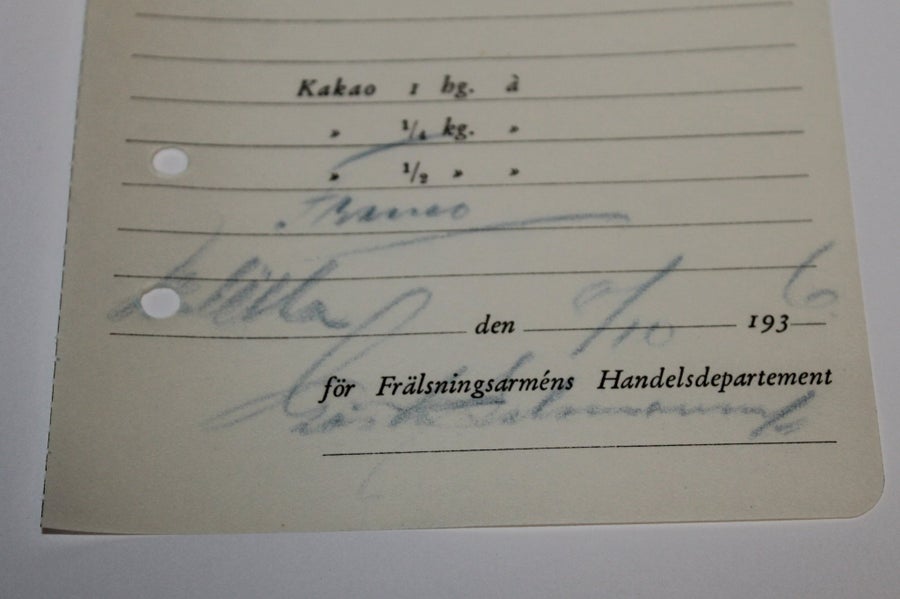 Kakao 1 hg. à
» 1/4 kg. »
» 1/2 » »
Franco
den /10 1936
för Frälsningsarméns Handelsdepartement